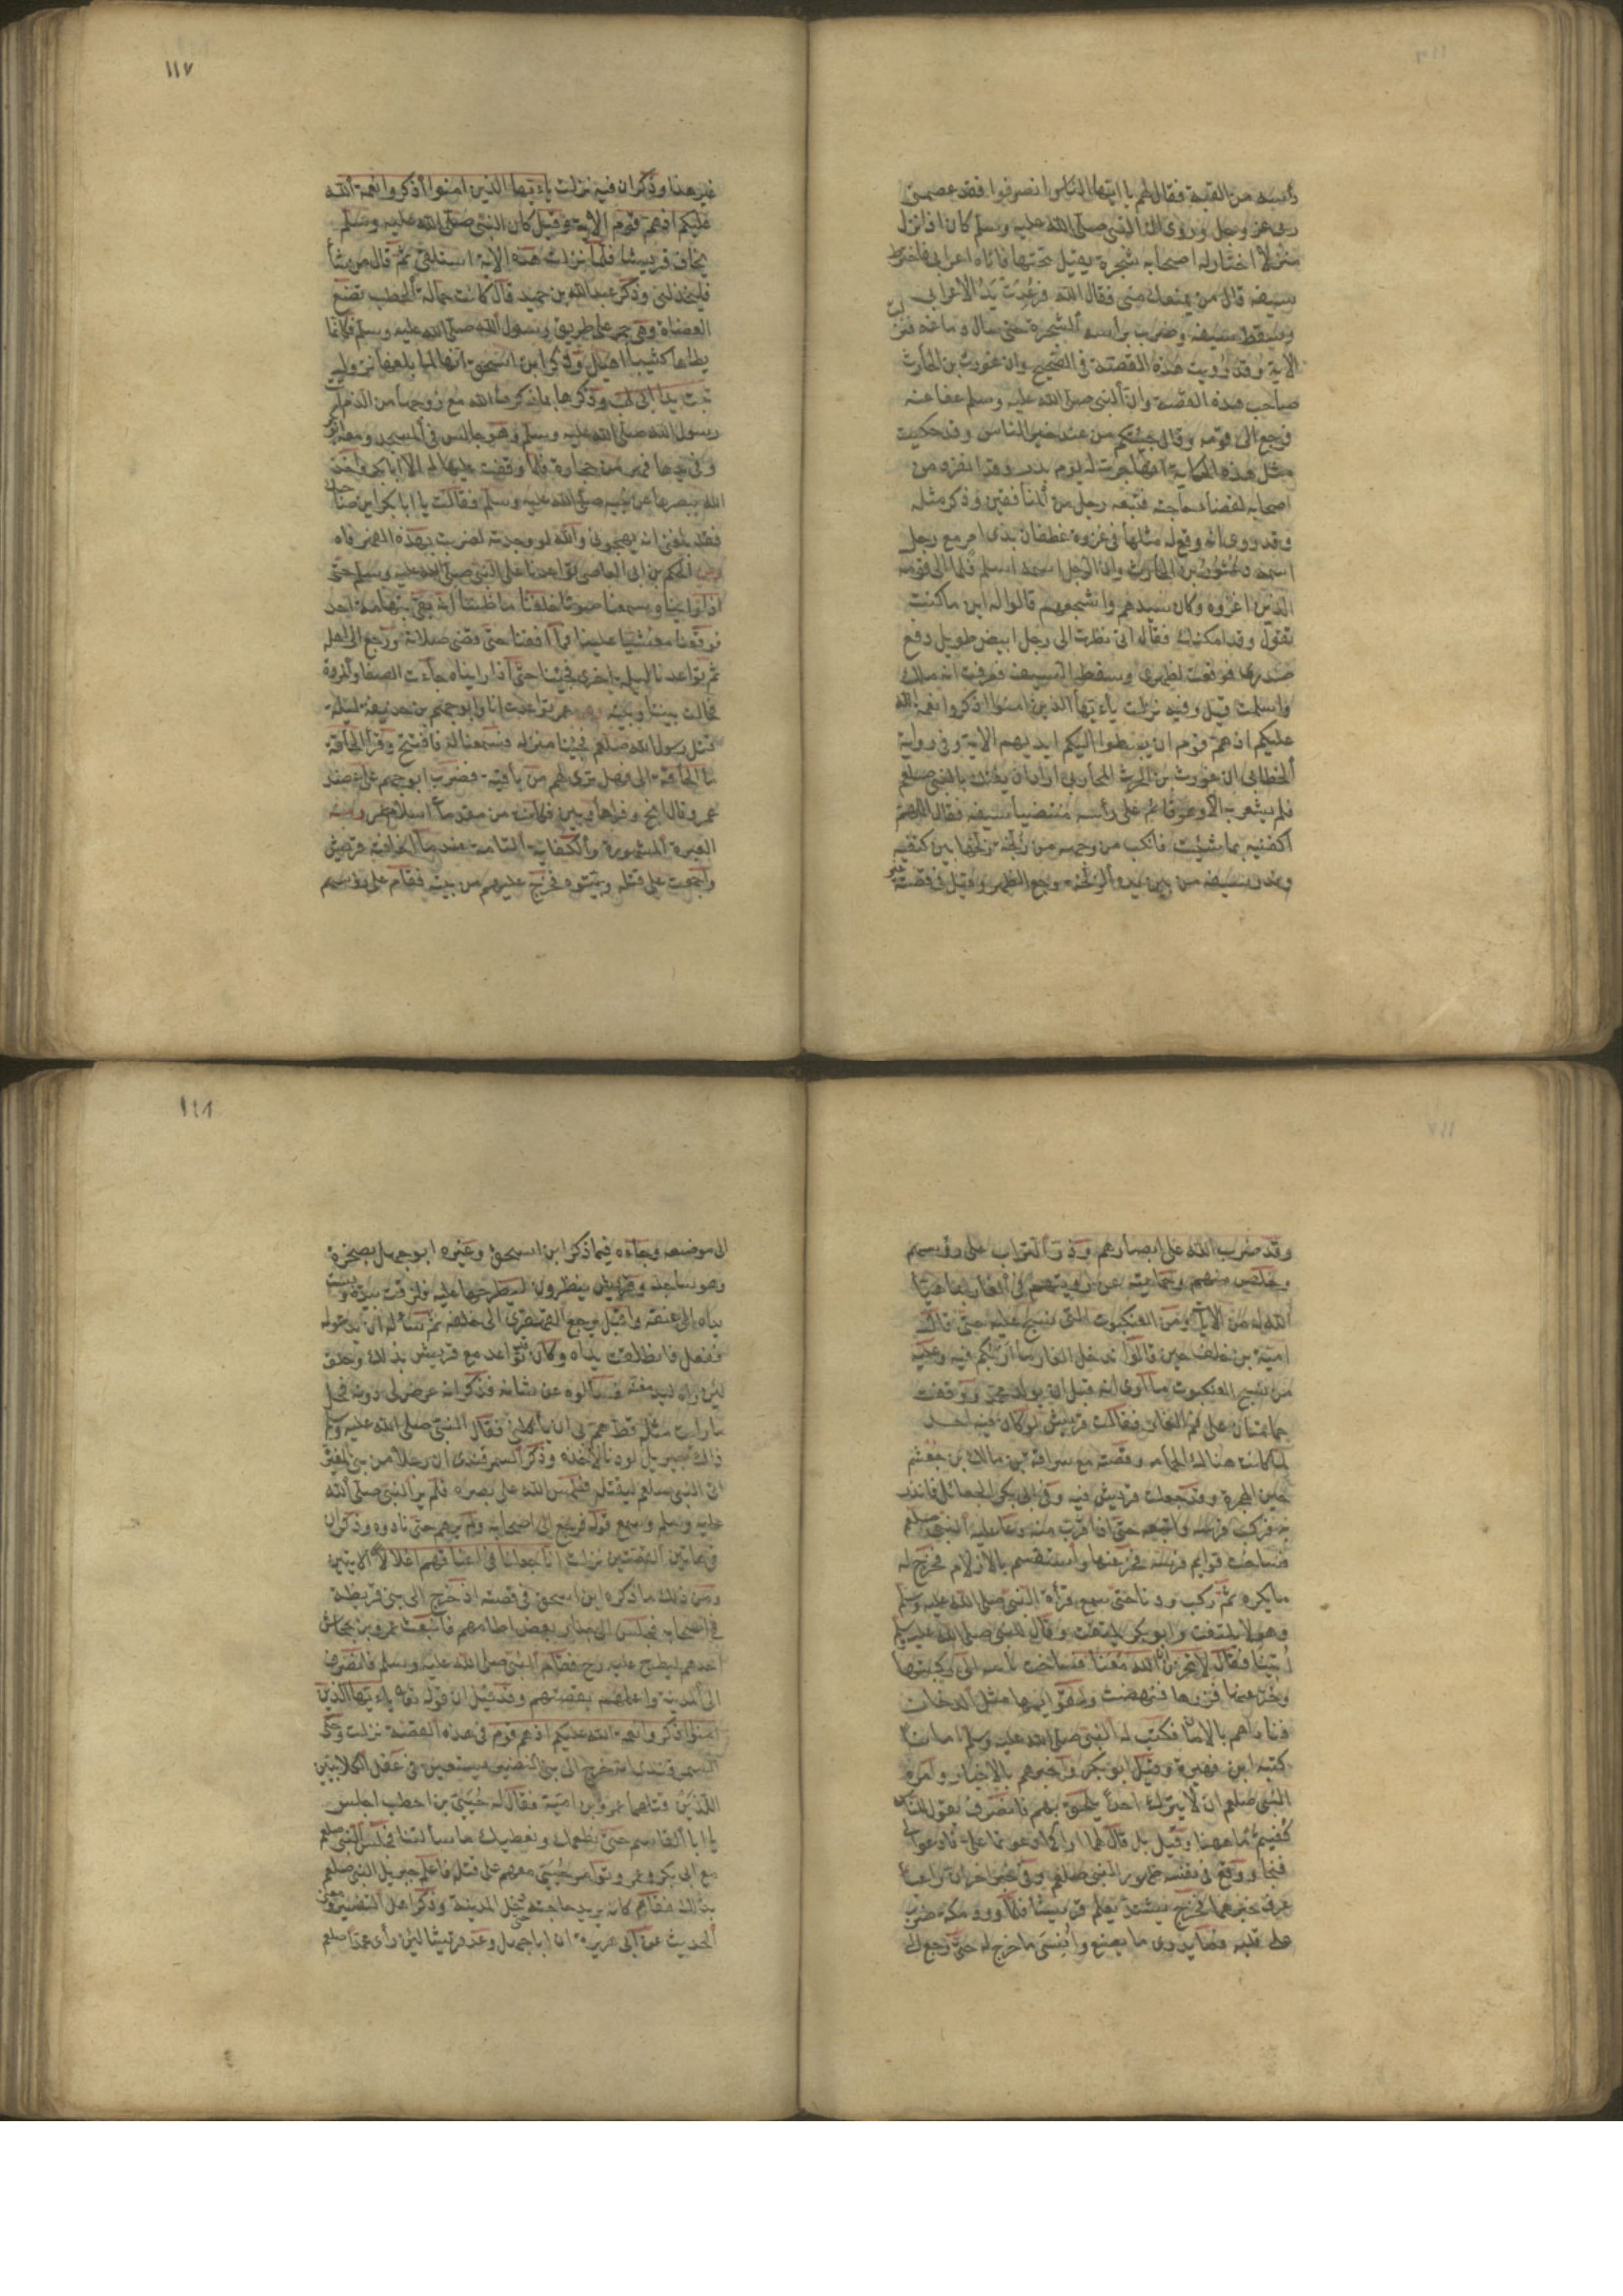 رأسه من القبة فقال لهم يا ايها الناس انصرفوا فقد عصمنى
ربى عز وجل وروى ان النبى صلى الله عليه وسلم كان اذا نزل
منزلا اختار له اصحابه شجرة يقيل تحتها فاتاه اعرابى فاخترط
سيفه قال من يمنعك منى فقال الله فرعدت يد الاعرابى
وسقط سيفه وضرب برأسه الشجرة حتى سال دماغه فنزلت
الاية وقد رويت هذه القصة فى الصحيح وان غورث بن الحارث
صاحب هذه القصة وان النبى صلى الله عليه وسلم عفا عنه
فرجع الى قومه وقال جئتكم من عند خير الناس وقد حكيت
مثل هذه الحكاية انها جرت له يوم بدر وقد انفرد من
اصحابه لقضاء حاجته فتبعه رجل من المنافقين وذكر مثله
وقد روى انه وقع له مثلها فى غزوة غطفان بذى امر مع رجل
اسمه دعثور بن الحارث وان الرجل اسلم فلما الى قومه
الذين اغروه وكان سيدهم واشجعهم قالوا له اين ما كنت
تقول وقد امكنك فقال انى نظرت الى رجل ابيض طويل دفع
صدرى فوقعت لظهرى وسقط السيف فعرفت انه ملك
واسلمت قيل وفيه نزلت ياءيها الذين امنوا اذكروا نعمة الله
عليكم اذ هم قوم ان يبسطوا اليكم ايديهم الاية وفى رواية
الخطابى ان غورث بن الحرث المحاربى اراد ان يفتك بالنبى صلعم
فلم يشعر به الا وهو قائم على رأسه منتضيا سيفه فقال اللهم
اكفنيه بما شئت فانكب من وجهه من زلخة زلخها بين كتفيه
وندر سيفه من يده والزلخة وجع الظهر وقيل فى قصته
١١٧
غير هذا وذكر ان فيه نزلت ياءيها الذين امنوا اذكروا نعمة الله
عليكم اذ هم قوم الاية وقيل كان النبى صلى الله عليه وسلم
يخاف قريشا فلما نزلت هذه الاية استلقى ثم قال من شأ
فليخذلنى وذكر عبد الله بن حميد قال كانت حمالة الحطب تضع
العضاة وهى جمر على طريق رسول الله صلى الله عليه وسلم فكانما
يطأها كثيبا اهيل وذكر ابن اسحق انها لما بلغها نزول
تبت يدا ابى لهب وذكرها بما ذكرها الله مع زوجها من الذم اتت
رسول الله صلى الله عليه وسلم وهو جالس فى المسجد ومعه ابو بكر
وفى يدها فهر من حجارة فلما وقفت عليهما لم الا ابا بكر واخذ
الله ببصرها عن نبيه صلى الله عليه وسلم فقالت يا ابا بكر اين صاحبك
فقد بلغنى انه يهجونى والله لو وجدته لضربت بهذه الفهر فاه
وعن الحكم بن ابى العاصى تواعدنا على النبى صلى الله عليه وسلم حتى
اذا رايناه سمعنا صوتا خلفنا ما ظننا انه بقى بتهامة احد
فوقعنا مغشيا علينا فما افقنا حتى قضى صلاته ورجع الى اهله
ثم تواعدنا ليلة اخرى فجئنا حتى اذا رايناه جاءت الصفا والمروة
فحالت بيننا وبينه وعن عمر تواعدت انا وابو جهم بن حذيفة ليلة
قتل رسول الله صلعم فجئنا منزله فسمعنا له فافتتح وقرأ الحاقة
ما الحاقة الى فهل ترى لهم من باقية فضرب ابو جهم على عضد
عمر وقال انج وفرا هاربين فكانت من مقدمات اسلام عمر ومنه
العبرة المشهورة والكفاية التامة عند ما اخافته قريش
واجمعت على قتله وبيتوه فخرج عليهم من بيته فقام على رؤسهم
وقد ضرب الله على ابصارهم وذر التراب على رؤسهم
وخلص منهم وحمايته عن رؤيتهم فى الغار بما هيأ
الله له من الايات ومن العنكبوت الذى نسج عليه حتى قال
امية بن خلف حين قالوا ندخل الغار ما اربكم فيه وعليه
من نسج العنكبوت ما ارى انه قبل ان يولد محمد ووقفت
حمامتان على فم الغار فقالت قريش لو كان فيه احد
لما كانت هناك الحمام وقصته مع سراقة بن مالك بن جعشم
حين الهجرة وقد جعلت قريش فيه وفى ابى بكر الجعائل فانذر
به فركب فرسه واتبعه حتى اذا قرب منه دعا عليه النبى صلعم
فساخت قوايم فرسه فخر عنها واستقسم بالازلام فخرج له
ما يكره ثم ركب ودنا حتى سمع قرأة النبى صلى الله عليه وسلم
وهو لا يلتفت وابو بكر يلتفت وقال للنبى صلى الله عليه وسلم
اتينا فقال لا تحزن ان الله معنا فساخت ثانية الى ركبتيها
وخر عنها فزجرها فنهضت ولقوايمها مثل الدخان
فناداهم بالامان فكتب له النبى صلى الله عليه وسلم امانا
كتبه ابن فهيرة وقيل ابو بكر واخبرهم بالاخبار وامره
النبى صلعم ان لا يترك احدا يلحق بهم فانصرف يقول للناس
كفيتم ما ههنا وقيل بل قال لهما اراكما دعوتما على فادعوا لى
فنجا ووقع فى نفسه ظهور النبى صلعم وفى خبر اخر ان راعيا
عرف خبرهما فخرج يشتد يعلم قريشا فلما ورد مكة ضرب
على قلبه فما يدرى ما يصنع وانسى ما خرج له حتى رجع الى
١١٨
الى موضعه وجاءه فيما ذكر ابن اسحق وغيره ابو جهل بصخرة
وهو ساجد وقريش ينظرون ليطرحها عليه فلزقت بيده ويبست
يداه الى عنقه واقبل يرجع القهقرى الى خلفه ثم سأله ان يدعو له
ففعل فانطلقت يداه وكان تواعد مع قريش بذلك وحلف
لئن راه ليدمغنه فسألوه عن شانه فذكر انه عرض لى دونه فحل
ما رايت مثله قط هم بى ان يأكلنى فقال النبى صلى الله عليه وسلم
ذاك جبريل لو دنا لاخذه وذكر السمرقندى ان رجلا من بنى المغيرة
اتى النبى صلعم ليقتله فطمس الله على بصره فلم ير النبى صلى الله
عليه وسلم وسمع قوله فرجع الى اصحابه ولم يرهم حتى نادوه وذكر ان
فى هاتين القصتين نزلت انا جعلنا فى اعناقهم اغلالا الايتين
ومن ذلك ما ذكره ابن اسحق فى قصته اذ خرج الى بنى قريظة
فى اصحابه فجلس الى جدار بعض اطامهم فانبعث عمرو بن جحاش
احدهم ليطرح عليه رحى فقام النبى صلى الله عليه وسلم فانصرف
الى المدينة واعلمهم بقصتهم وقد قيل ان قوله تعالى ياءيها الذين
امنوا اذكروا نعمة الله عليكم اذ هم قوم فى هذه القصة نزلت وحكى
السمرقندى انه خرج الى بنى النضير يستعين فى عقل الكلابيين
اللذين قتلهما عمرو بن امية فقال له حيى بن اخطب اجلس
يا ابا القاسم حتى نطعمك ونعطيك ما سألتنا فجلس النبى صلعم
مع ابى بكر وعمر وتوامر حيى معهم على قتله فاعلم جبريل النبى صلعم
بذلك فقام كانه يريد حاجته حتى دخل المدينة وذكر اهل التفسير ومعنى
الحديث عن ابى هريرة ان ابا جهل وعد قريشا لئن رأى محمدا صلعم